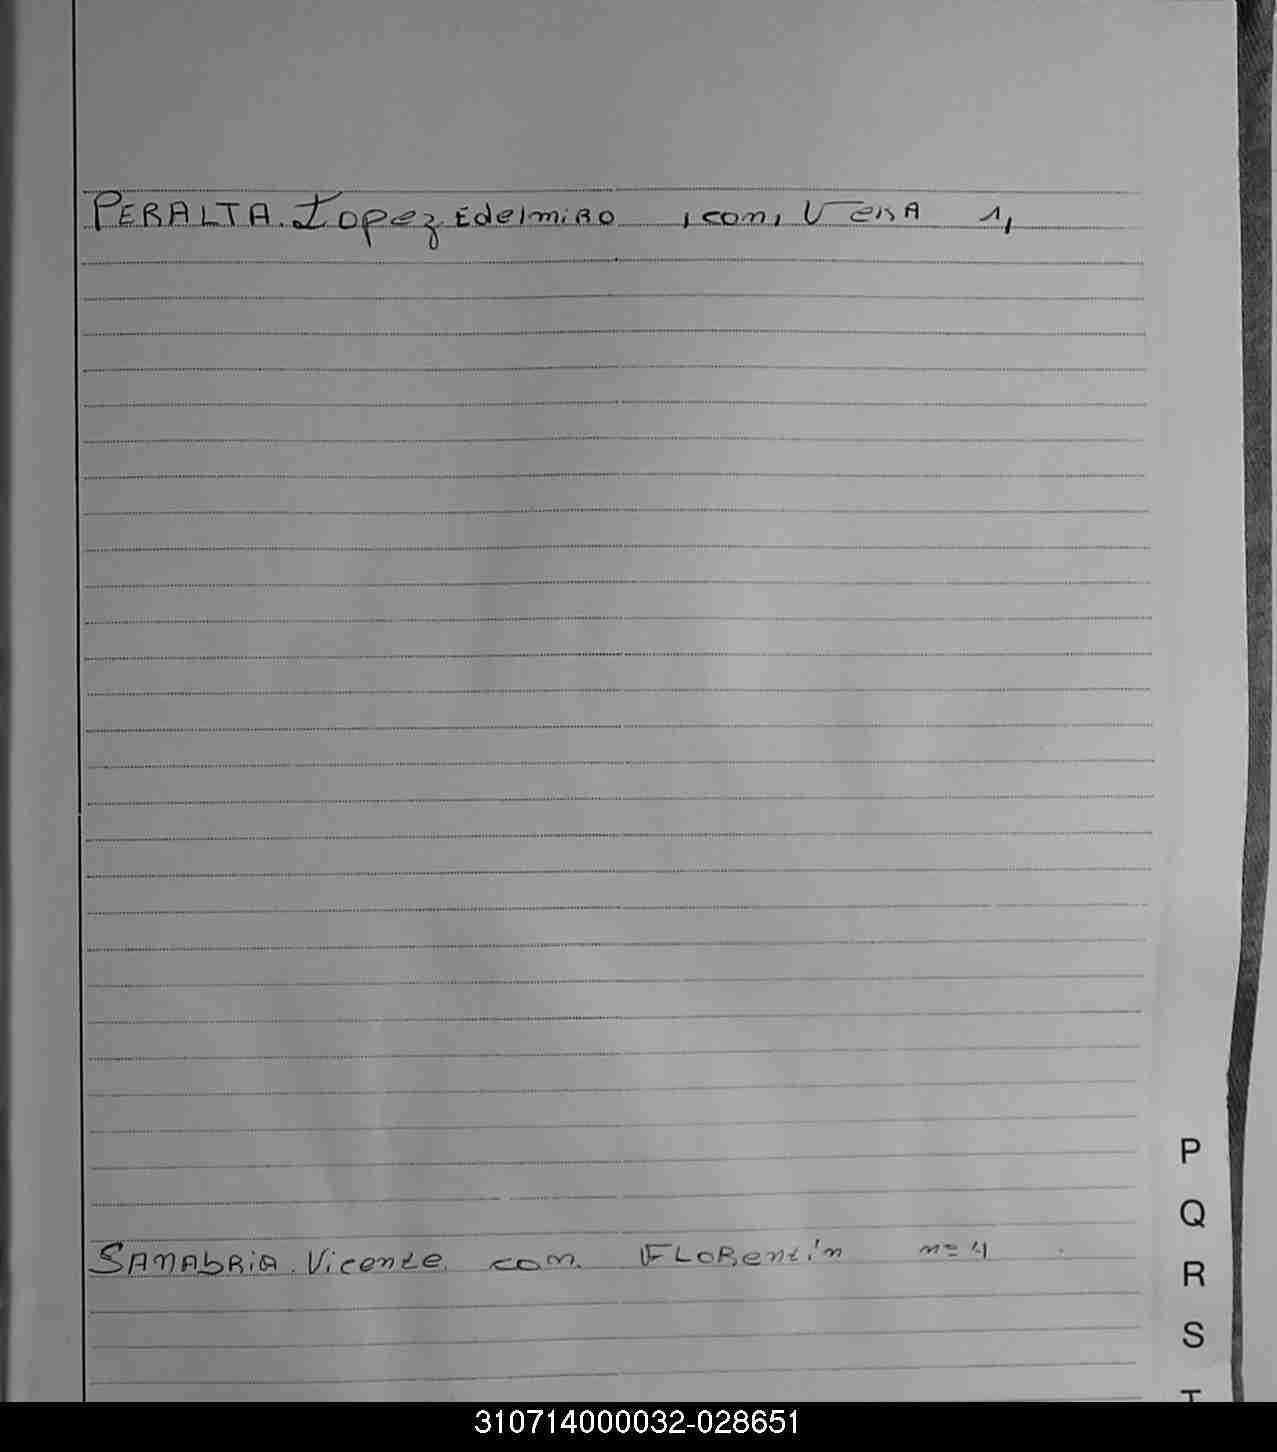 PERALTA. Lopez Edelmiro , con, Vera 1,
P
Q
R
SANAbRiA. Vicente. con. FLORentín nº 4
S
T
310714000032-028651